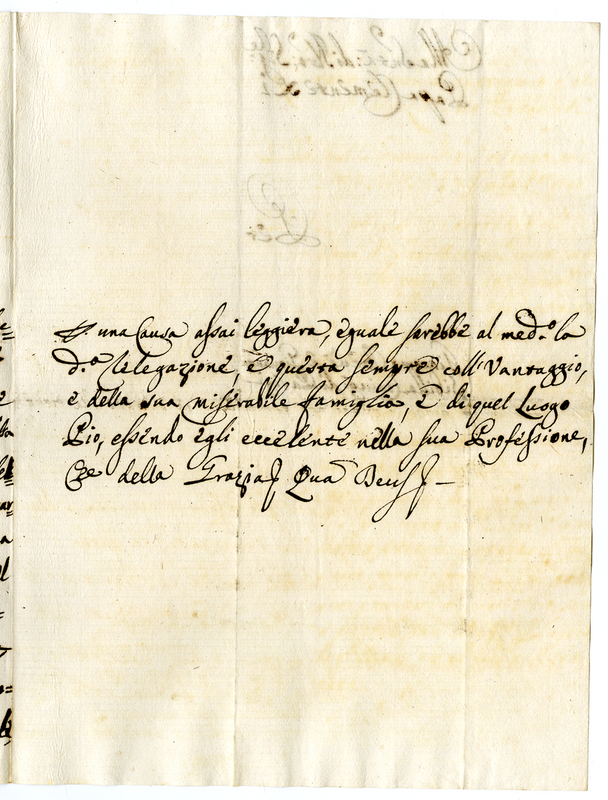 Alla Santà di Nro Sigre
Papa Clemente XI.
Per
P. una Causa assai leggiera, eguale sarebbe al med.o la
d.a relegazione, è questa sempre coll'Vantaggio,
e della sua miserabile famiglia, è di quel Luogo
Pio, essendo egli eccelente nella sua Professione,
Che della Grazia Quà Deus —